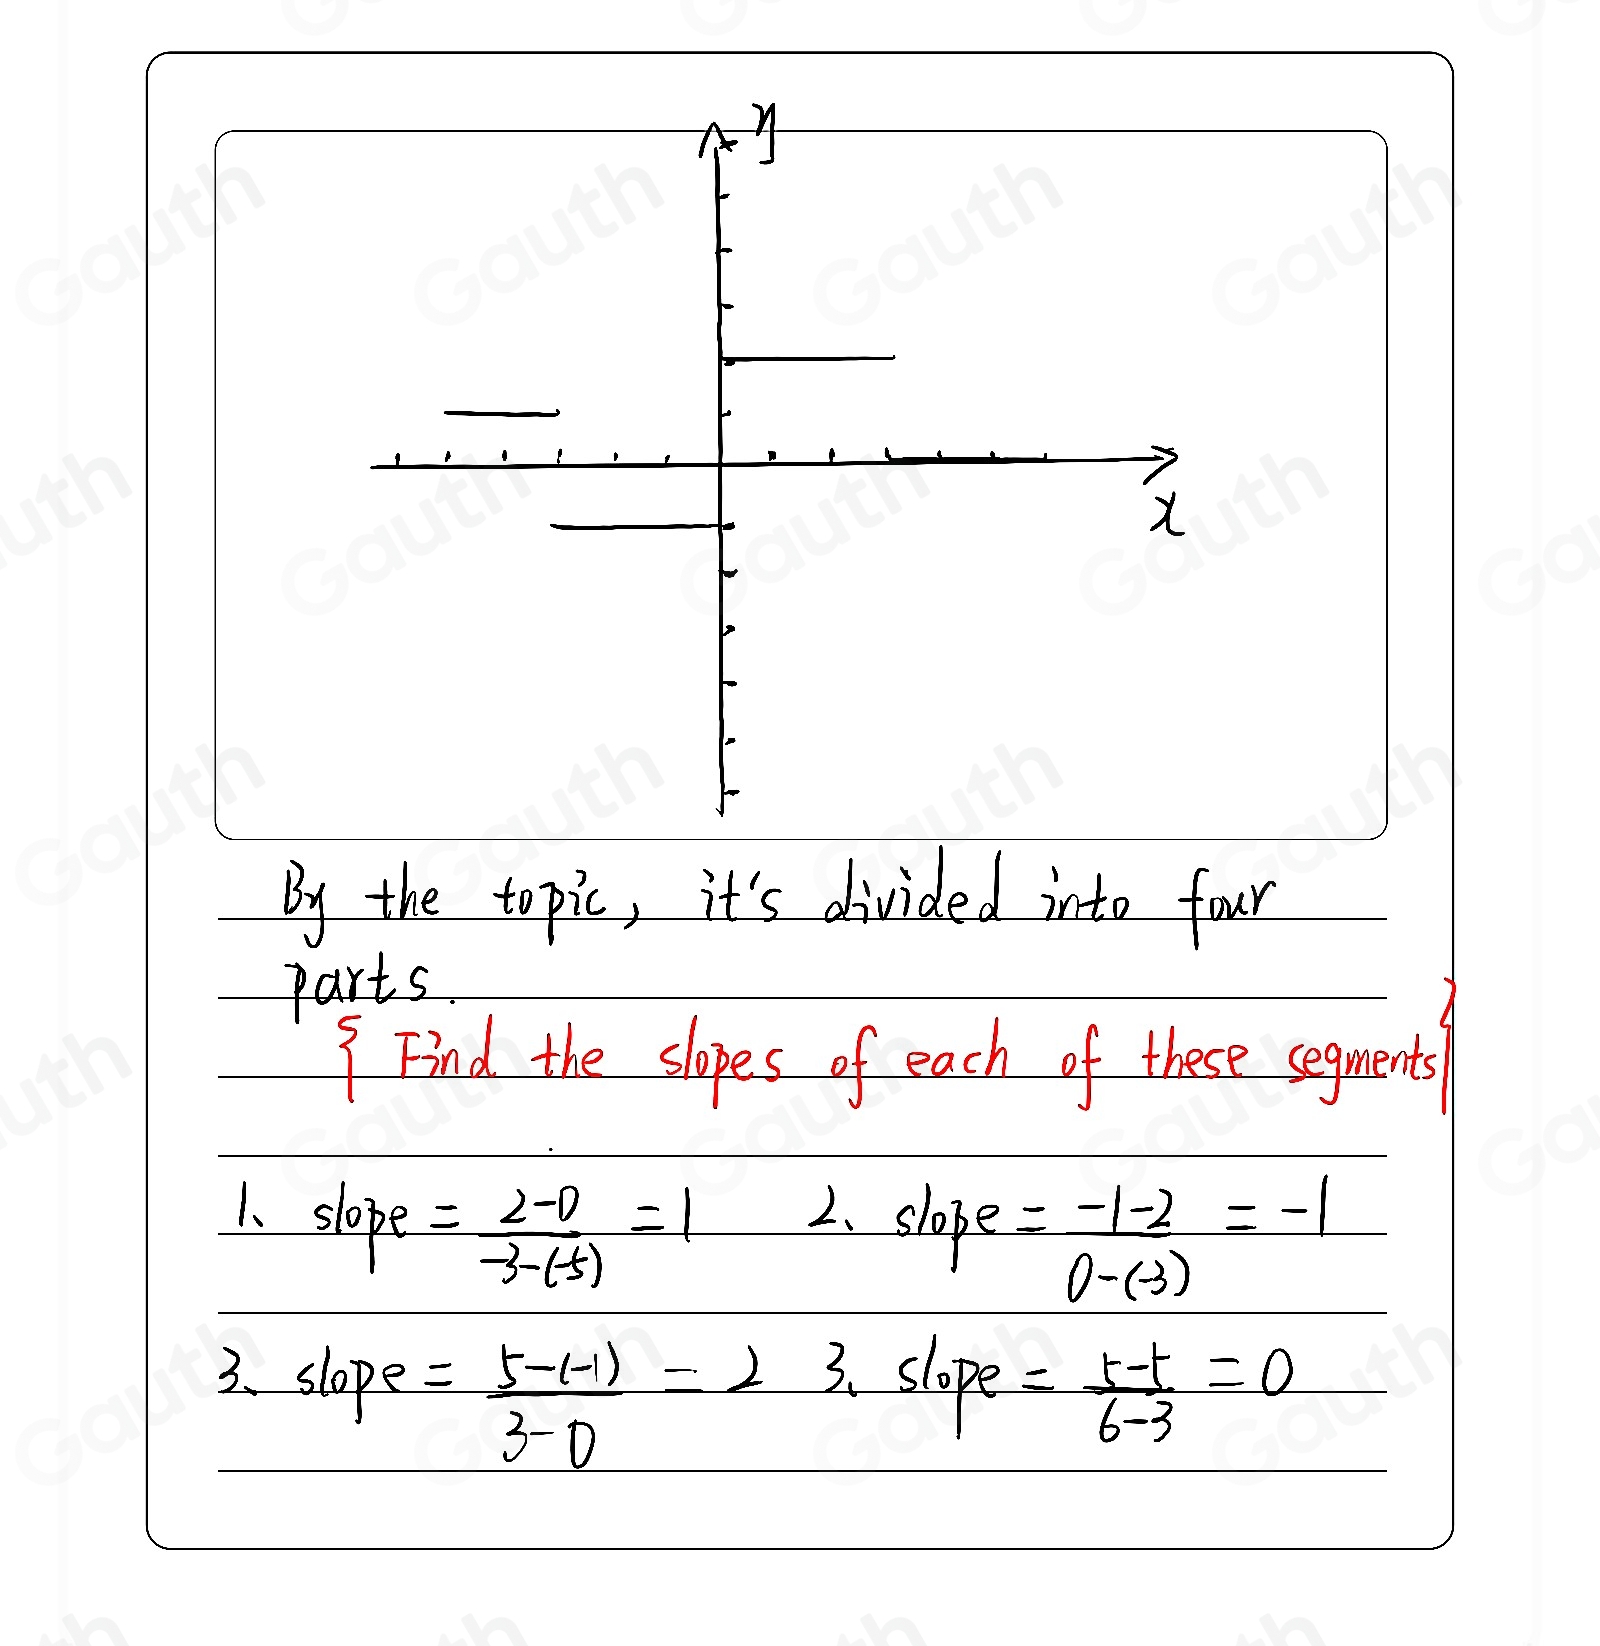 y
x
By the topic, it's divided into four
parts.
{ Find the slopes of each of these segments}
1、 slope = 2-0 / -3-(-5) = 1 2、 slope = -1-2 / 0-(-3) = -1
3、 slope = 5-(-1) / 3-0 = 2 3、 slope = 5-5 / 6-3 = 0
Gauth